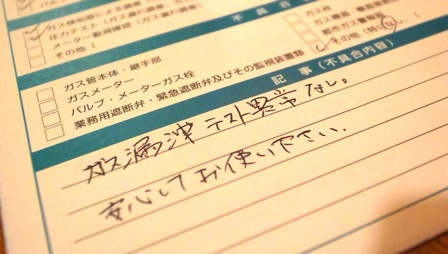 ガス検知器による調査（ガス漏え
圧力テスト（ガス漏え調査）
メーター監視確認（ガス漏え調査）
その他（
不具合
ガス栓
都市ガス警報器
その他（特になし、
ガス管本体・継手部
ガスメーター
バルブ・メーターガス栓
業務用遮断弁・緊急遮断弁及びその監視装置類
記事（不具合内容）
ガス漏洩テスト異常なし。
安心してお使い下さい.